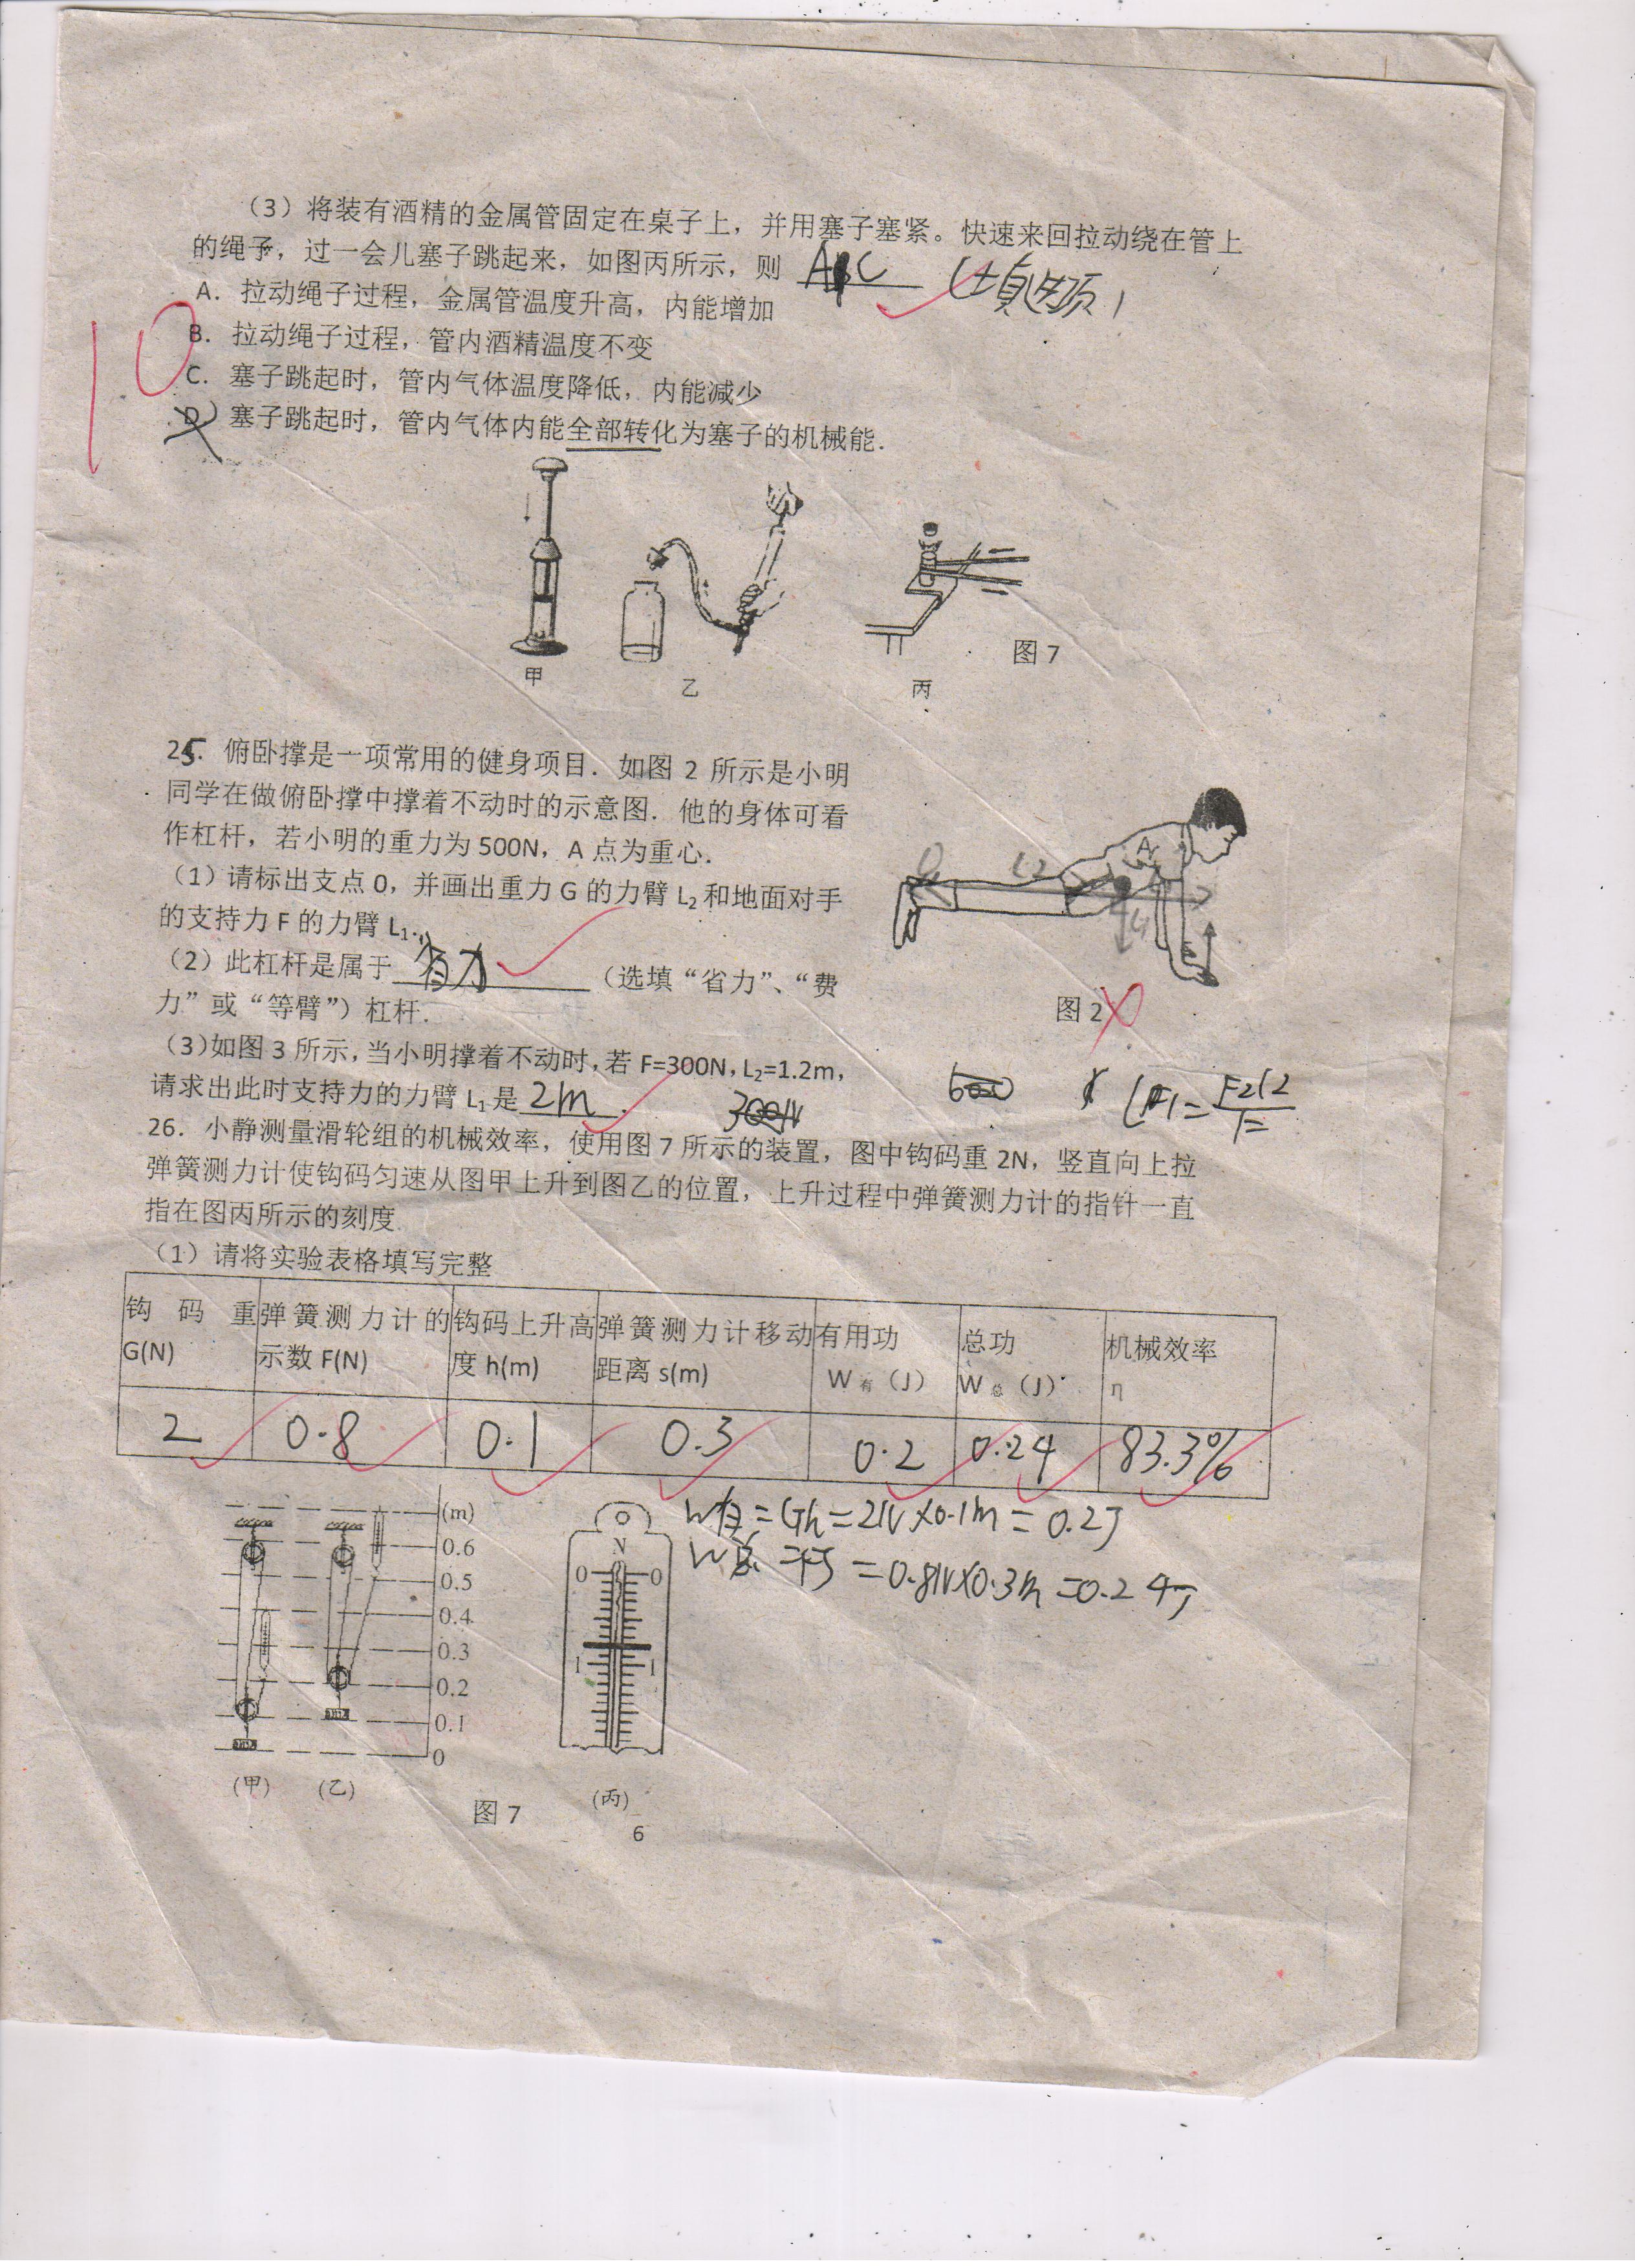 （3）将装有酒精的金属管固定在桌子上，并用塞子塞紧。快速来回拉动绕在管上
的绳子，过一会儿塞子跳起来，如图丙所示，则 AC （填选项）
A．拉动绳子过程，金属管温度升高，内能增加
10
B．拉动绳子过程，管内酒精温度不变
C．塞子跳起时，管内气体温度降低，内能减少
D．塞子跳起时，管内气体内能全部转化为塞子的机械能．
甲
乙
丙
图 7
25．俯卧撑是一项常用的健身项目．如图 2 所示是小明
同学在做俯卧撑中撑着不动时的示意图．他的身体可看
作杠杆，若小明的重力为 500N，A 点为重心．
（1）请标出支点 0，并画出重力 G 的力臂 L2 和地面对手
的支持力 F 的力臂 L1．
（2）此杠杆是属于 省力 （选填“省力”、“费
力”或“等臂”）杠杆．
O
L2
A
G
F
图 2
（3）如图 3 所示，当小明撑着不动时，若 F=300N，L2=1.2m，
请求出此时支持力的力臂 L1 是 2m ．
600
300N
26．小静测量滑轮组的机械效率，使用图 7 所示的装置，图中钩码重 2N，竖直向上拉
弹簧测力计使钩码匀速从图甲上升到图乙的位置，上升过程中弹簧测力计的指针一直
指在图丙所示的刻度
（1）请将实验表格填写完整
钩码重 G(N) 弹簧测力计的示数 F(N) 钩码上升高度 h(m) 弹簧测力计移动距离 s(m) 有用功 W有（J） 总功 W总（J） 机械效率 η
2 0.8 0.1 0.3 0.2 0.24 83.3%
W有=Gh=2N×0.1m=0.2J
W总=FS=0.8N×0.3m=0.24J
(m)
0.6
0.5
0.4
0.3
0.2
0.1
0
N
0 0
1 1
(甲)
(乙)
(丙)
图 7
6